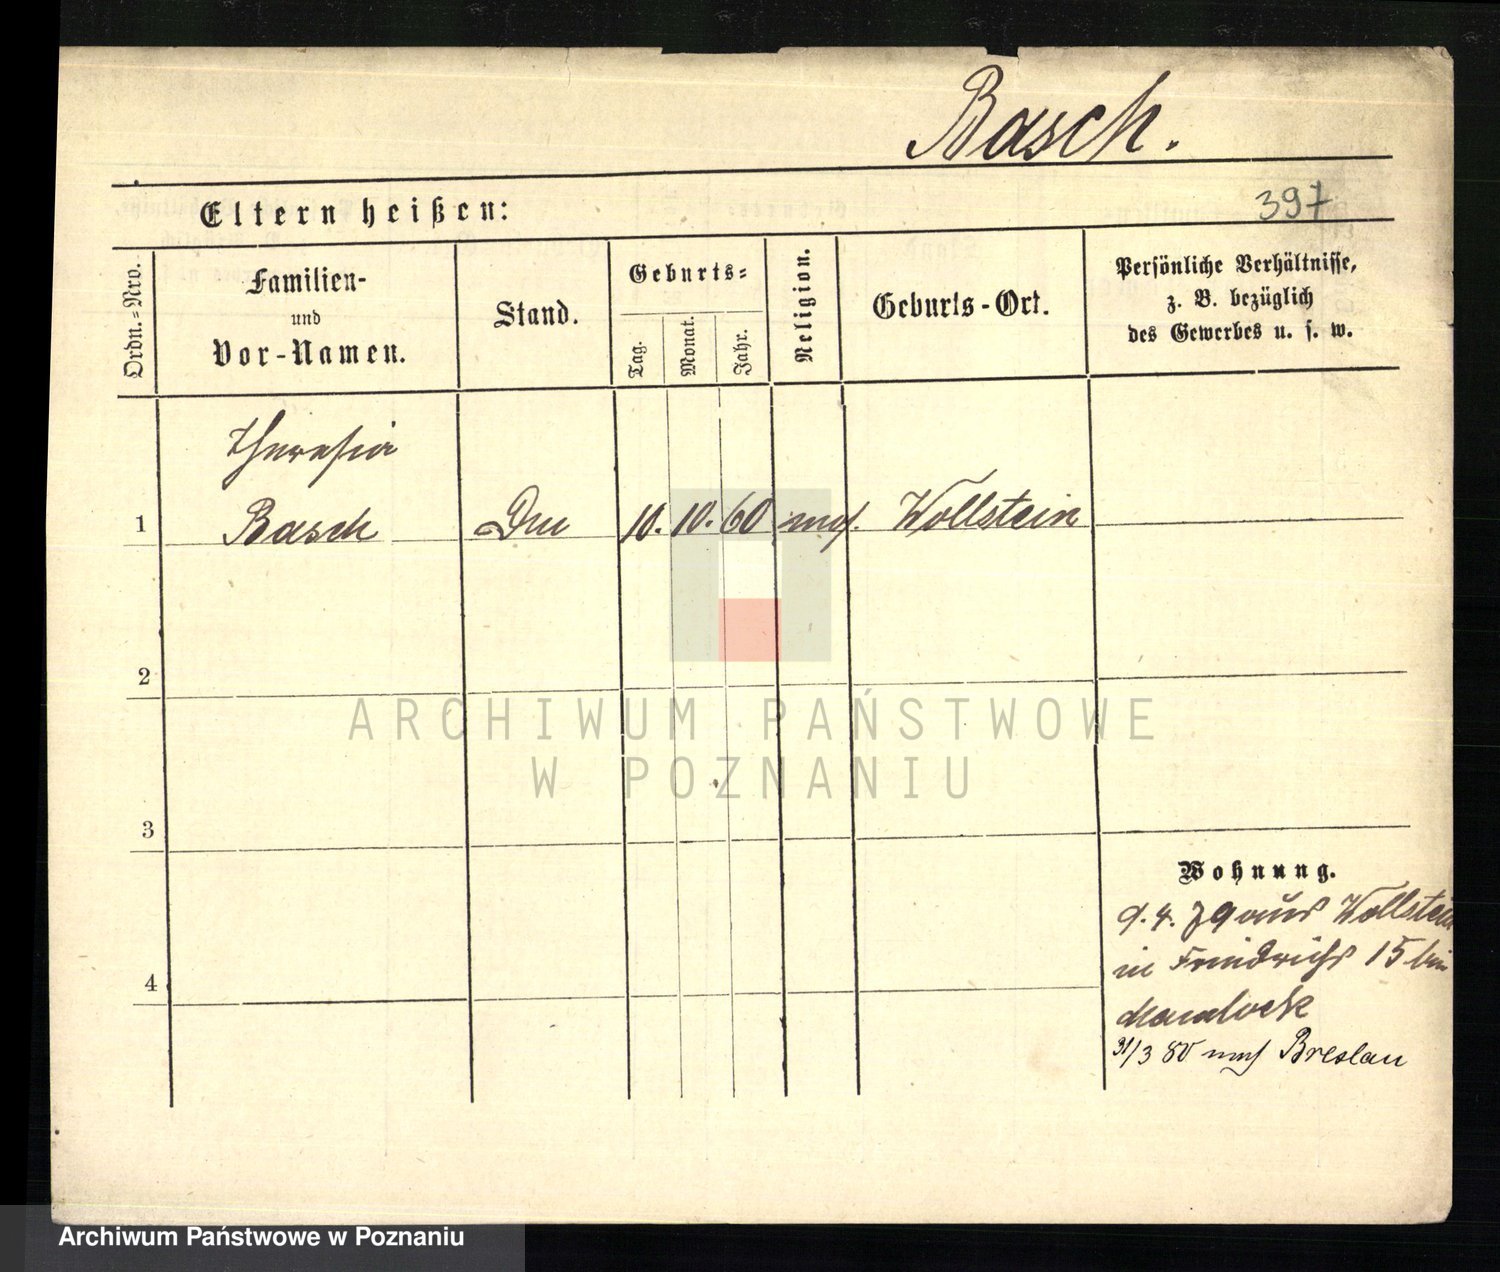 Basch.
397
Eltern heißen:
Ordn.=Nro.
Familien-
und
Vor-Namen.
Stand.
Geburts=
Tag.
Monat.
Jahr.
Religion.
Geburts-Ort.
Persönliche Verhältnisse,
z. B. bezüglich
des Gewerbes u. s. w.
Theresia
1 Basch 10. 10. 60 Wollstein
2
3
4
Wohnung.
9. 4. 79 aus Wollstein
in Friedrichs 15 bei
31/3 80 nach Breslau
ARCHIWUM PAŃSTWOWE
W POZNANIU
Archiwum Państwowe w Poznaniu